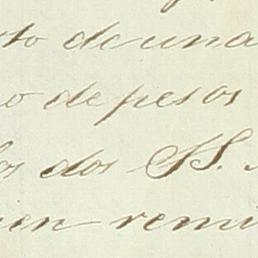 to de una
o de pesos
los dos SS.
en remi